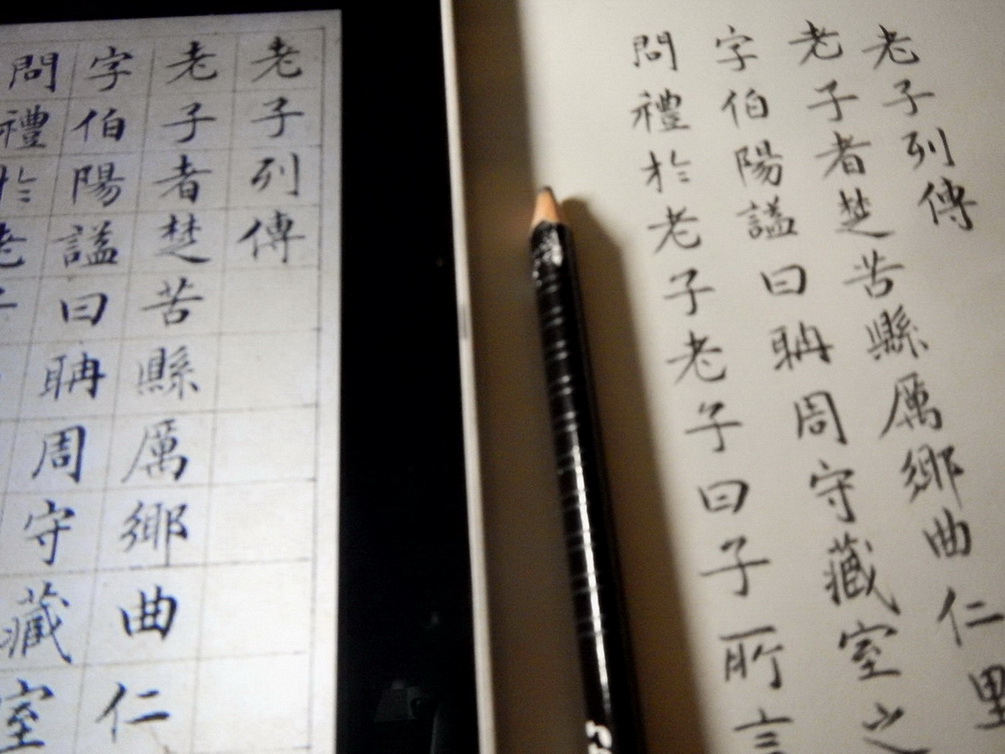 老子列傳
老子者楚苦縣厲鄉曲仁
字伯陽謚曰聃周守藏室
問禮於老子
老子列傳
老子者楚苦縣厲鄉曲仁里
字伯陽謚曰聃周守藏室之
問禮於老子老子曰子所言